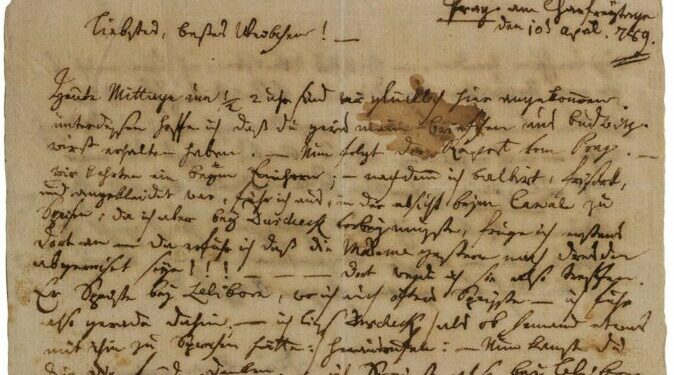 Prag am Charfreytage
den 10t April. 789.
liebstes, bestes Weibchen! —
Heute Mittags um ½ 2 uhr sind wir glücklich hier angekommen.
unterdessen hoffe ich daß du gewis mein Briefchen aus Budwitz
wirst erhalten haben. — Nun folgt der Rapport von Prag. —
wir kehrten ein beym Einhorn; — nachdem ich balbirt, frisirt,
und angekleidet war, fuhr ich aus, in der absicht beym Canal zu
Speisen; da ich aber bey Duscheck vorbey musste, frug ich erstens
dort an — da erfuhr ich daß die Madame gestern nach dresden
abgereiset seye!!! — dort werde ich sie also treffen.
Er Speiste bey Leliborn, wo ich auch öfters Speiste — ich fuhr
also gerade dahin. — ich ließ Duscheck /als ob Jemand etwas
mit ihm zu Sprechen hätte: herausrufen: — Nun kannst du